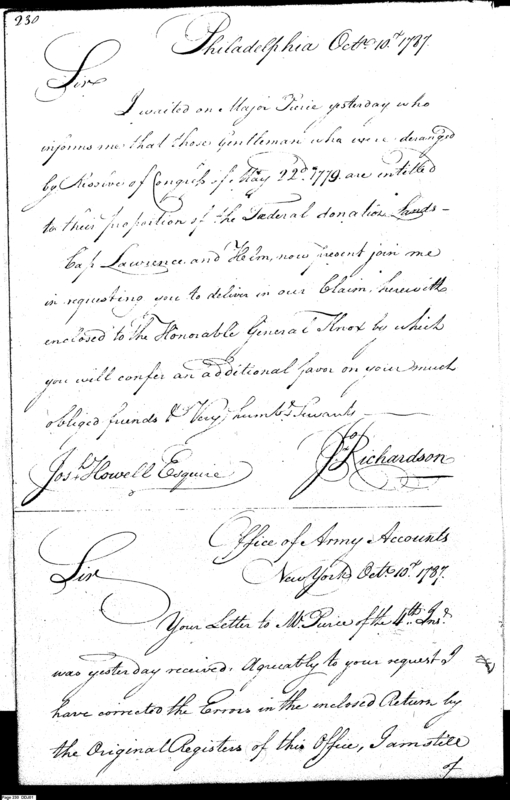 230
Philadelphia Octr. 10th 1787.
Sir
I waited on Major Pierce yesterday who
informs me that those Gentleman who were deranged
by Resolve of Congress of May 22d. 1779 are entitled
to their proportion of the Fæderal donation Lands—
Cap Lawrence and Helm, now present join me
in requesting you to deliver in our Claim, herewith
enclosed to the Honorable General Knox by which
you will confer an additional favor on your much
obliged friends & Very humbe. Servants
Jos. Howell Esquire
Jo. Richardson
Office of Army Accounts
New York Octr. 10th 1787.
Sir
Your Letter to Mr. Pierce of the 4th. Inst.
was yesterday received. Agreeably to your request I
have corrected the Errors in the enclosed Return by
the Original Registers of this Office, I am still
of
Page 230 DDJ01